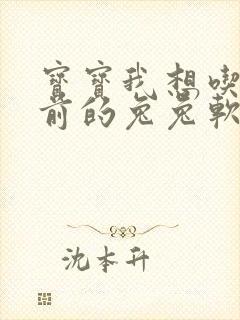 寶寶我想喫
前的兔兔軟
沈本升